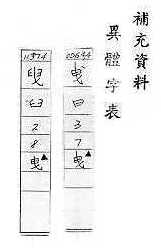 補充資料
異體字表
00644
曵
曰
3
7
曳▲
11374
臾
臼
2
8
曳▲